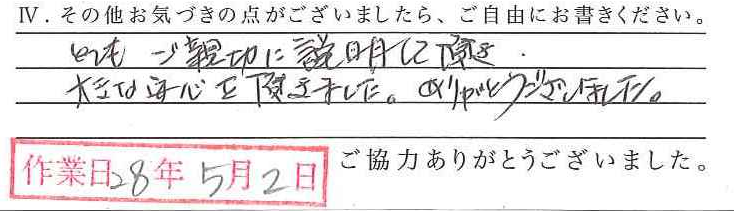 Ⅳ．その他お気づきの点がございましたら、ご自由にお書きください。
とても ご親切に説明して頂き、
大きな安心を頂きました。ありがとうございました。
作業日28年5月2日
ご協力ありがとうございました。